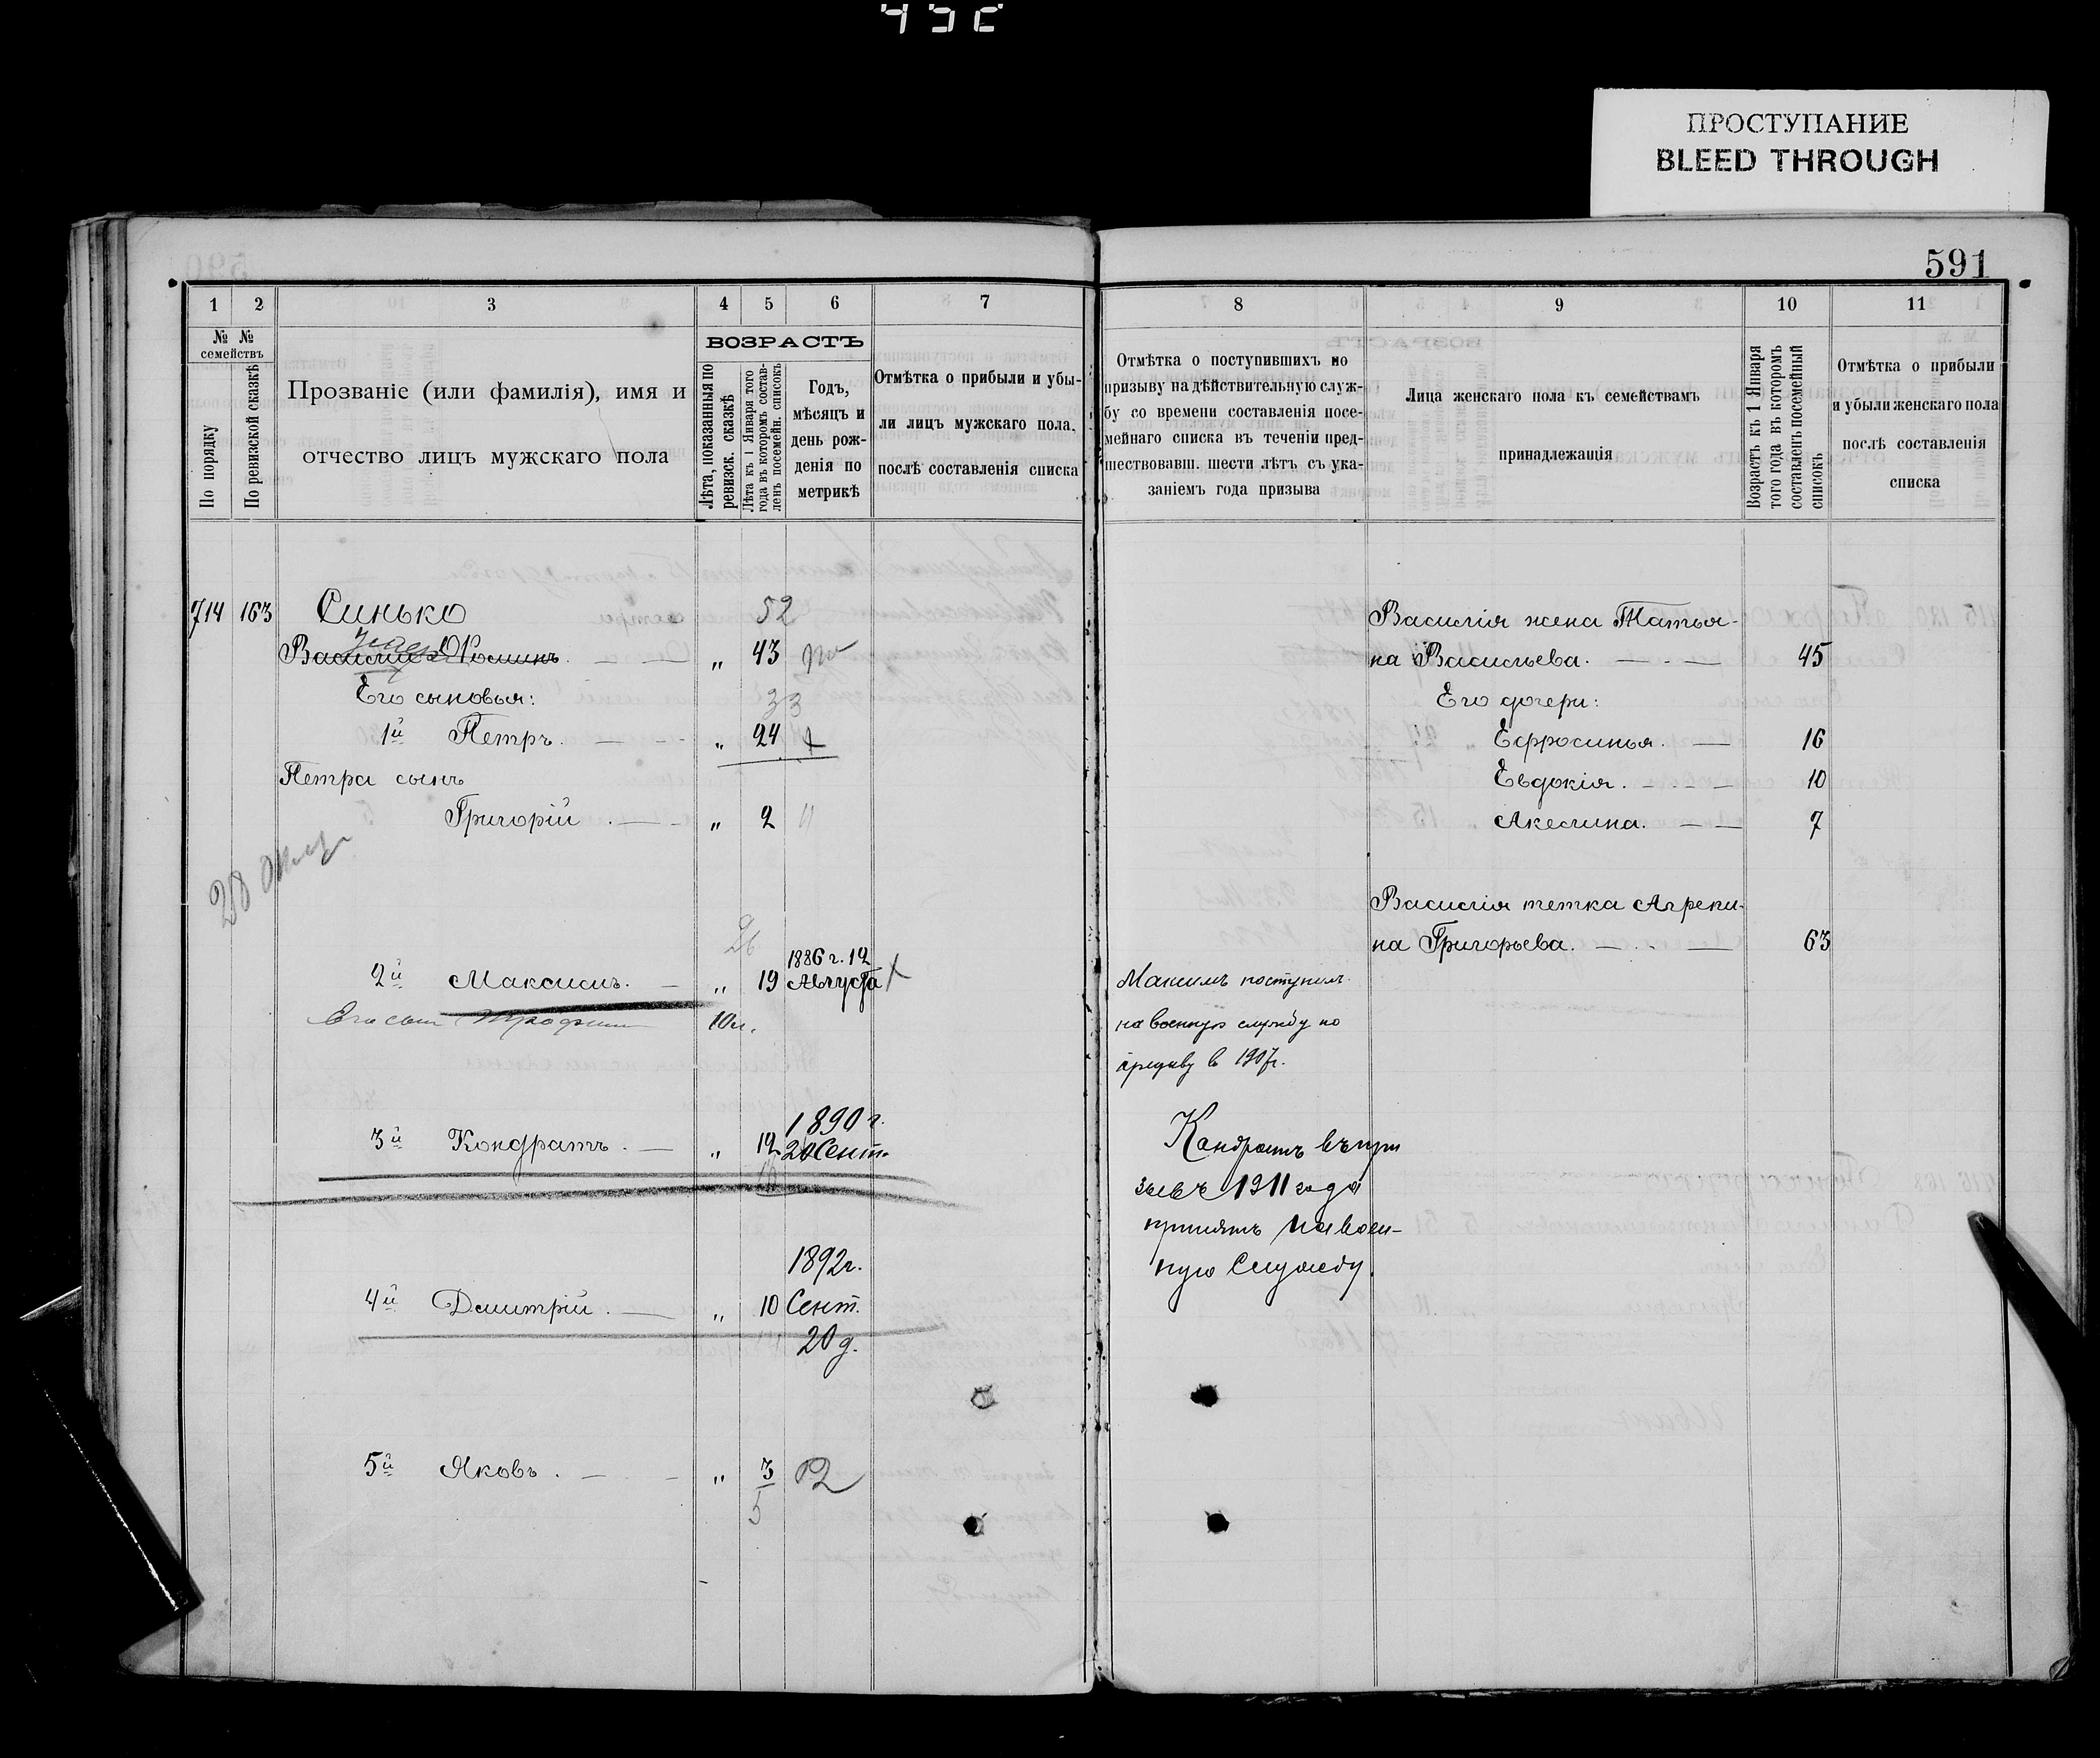 ПРОСТУПАНИЕ
BLEED THROUGH
591
1 2 3 4 5 6 7
№ № семействъ
По порядку
По ревизской сказкѣ
Прозваніе (или фамилія), имя и
отчество лицъ мужскаго пола
ВОЗРАСТЪ
Лѣта, показанныя по
ревизск. сказкѣ
Лѣта къ 1 Января того
года въ которомъ состав-
ленъ посемейн. списокъ
Годъ,
мѣсяцъ и
день рож-
денія по
метрикѣ
Отмѣтка о прибыли и убы-
ли лицъ мужскаго пола,
послѣ составленія списка
714 163 Синько 52
Василій . — — „ 43
Его сыновья: 33
1й Петръ. — — „ 24
Петра сынъ
Григорій . — — „ 2
26
1886 г. 12
2й Максимъ. — „ 19 Августа
Его сын
1890 г.
3й Кондратъ. — „ 12 Сент.
1892г.
4й Дмитрій. — „ 10 Сент.
20 д.
5й Яковъ. — — „ 3
5
8 9 10 11
Отмѣтка о поступившихъ по
призыву на дѣйствительную служ-
бу со времени составленія посе-
мейнаго списка въ теченіи пред-
шествовавш. шести лѣтъ съ ука-
заніемъ года призыва
Лица женскаго пола къ семействамъ
принадлежащія
Возрастъ къ 1 Января
того года въ которомъ
составленъ посемейный
списокъ
Отмѣтка о прибыли
и убыли женскаго пола
послѣ составленія
списка
Василія жена Татья-
на Васильева. — — 45
Его дочери:
Ефросинья. — 16
Евдокія. — — 10
Акелина. — — 7
Василія тетка Агрепи-
на Григорьева. — — 63
Максимъ поступил
на военную службу по
призыву в 1907г.
Кондратъ въ при
зывъ 1911 года
принятъ на воен-
ную Службу.